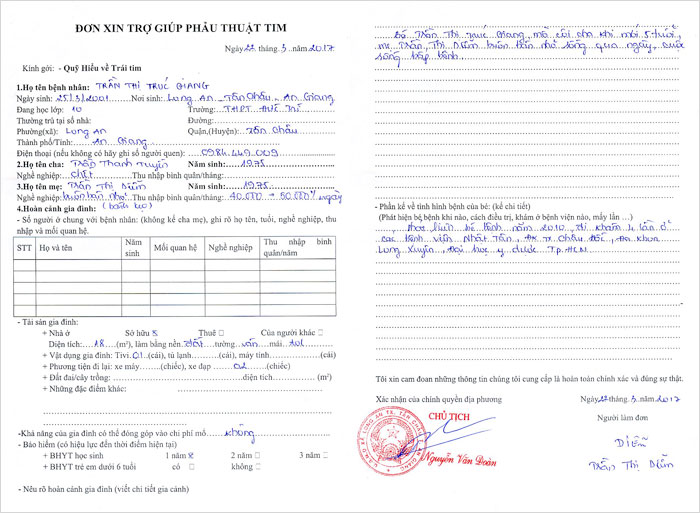 ĐƠN XIN TRỢ GIÚP PHẪU THUẬT TIM
Ngày 22 tháng 3 năm 2017
Kính gởi: - Quỹ Hiểu về Trái tim
1.Họ tên bệnh nhân: TRẦN THỊ TRÚC GIANG
Ngày sinh: 25/3/2001 Nơi sinh: Long An - Tân Châu - An Giang
Đang học lớp: 10 Trường: THPT
Thường trú tại số nhà: Đường:
Phường(xã): Long An Quận,(Huyện): Tân Châu
Thành phố/Tỉnh: An Giang
Điện thoại (nếu không có hãy ghi số người quen): 0984.449.009
2.Họ tên cha: Trần Thanh Năm sinh: 1975
Nghề nghiệp: chết Thu nhập bình quân/tháng:
3.Họ tên mẹ: Trần Thị Diễm Năm sinh: 1975
Nghề nghiệp: buôn bán nhỏ Thu nhập bình quân/tháng: 40.000 - 50.000đ ngày
4.Hoàn cảnh gia đình:
- Số người ở chung với bệnh nhân: (không kể cha mẹ), ghi rõ họ tên, tuổi, nghề nghiệp, thu
nhập và mối quan hệ.
STT Họ và tên Năm sinh Mối quan hệ Nghề nghiệp Thu nhập bình quân/năm
- Tài sản gia đình:
+ Nhà ở Sở hữu Thuê Của người khác
Diện tích: 18 (m²), làm bằng nền đất tường ván mái tol
+ Vật dụng gia đình: Tivi 01 (cái), tủ lạnh (cái), máy tính (cái)
+ Phương tiện đi lại: xe máy (chiếc), xe đạp 02 (chiếc)
+ Đất đai/cây trồng: diện tích (m²)
+ Những đặc điểm khác:
-Khả năng của gia đình có thể đóng góp vào chi phí mổ không
- Bảo hiểm (có hiệu lực đến thời điểm hiện tại)
+ BHYT học sinh 1 năm 2 năm 3 năm
+ BHYT trẻ em dưới 6 tuổi có không
- Nêu rõ hoàn cảnh gia đình (viết chi tiết gia cảnh)
Bé Trần Thị Trúc Giang, mồ côi cha khi mới 5 tuổi,
mẹ Trần Thị Diễm buôn bán nhỏ sống qua ngày, cuộc
sống bấp bênh.
- Phần kể về tình hình bệnh của bé: (kể chi tiết)
(Phát hiện bé bệnh khi nào, cách điều trị, khám ở bệnh viện nào, mấy lần …)
bé bệnh năm 2010, đi khám 4 lần ở
các bệnh viện Nhật Tân, ĐK TX Châu Đốc, Đa khoa
Long Xuyên, Đại học y dược TP.HCM
Tôi xin cam đoan những thông tin chúng tôi cung cấp là hoàn toàn chính xác và đúng sự thật.
Xác nhận của chính quyền địa phương Ngày 22 tháng 3 năm 2017
CHỦ TỊCH Người làm đơn
Nguyễn Văn Đoàn
Diễm
Trần Thị Diễm